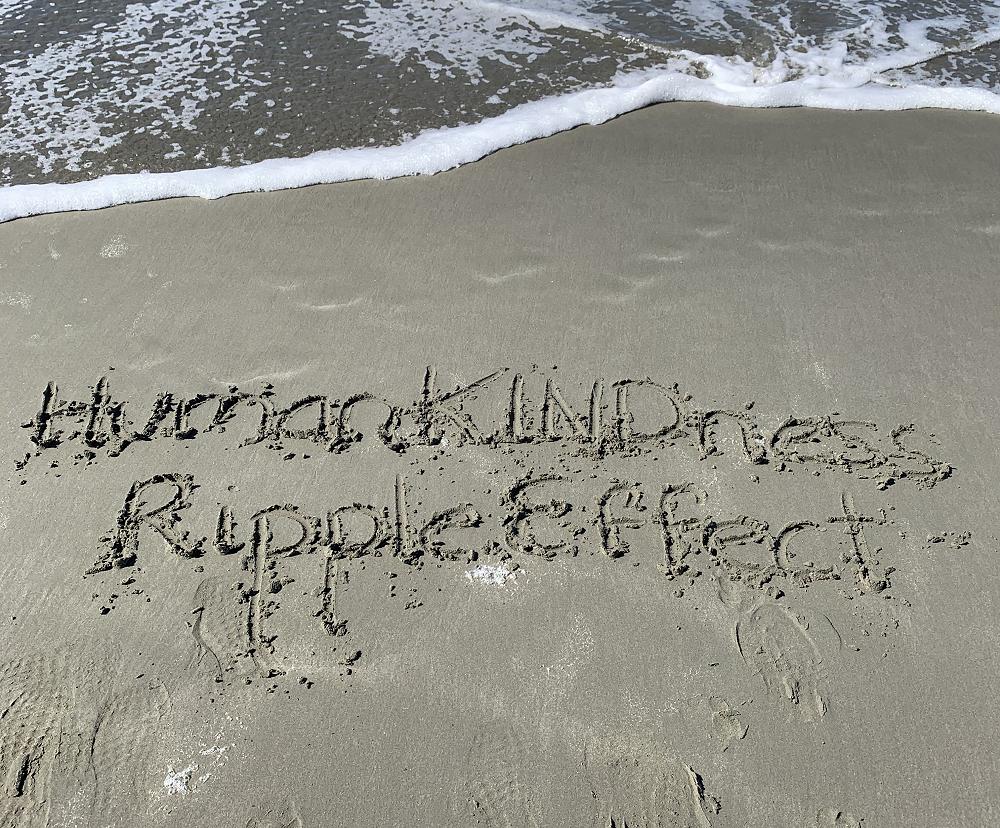 HumanKINDness
Ripple Effect